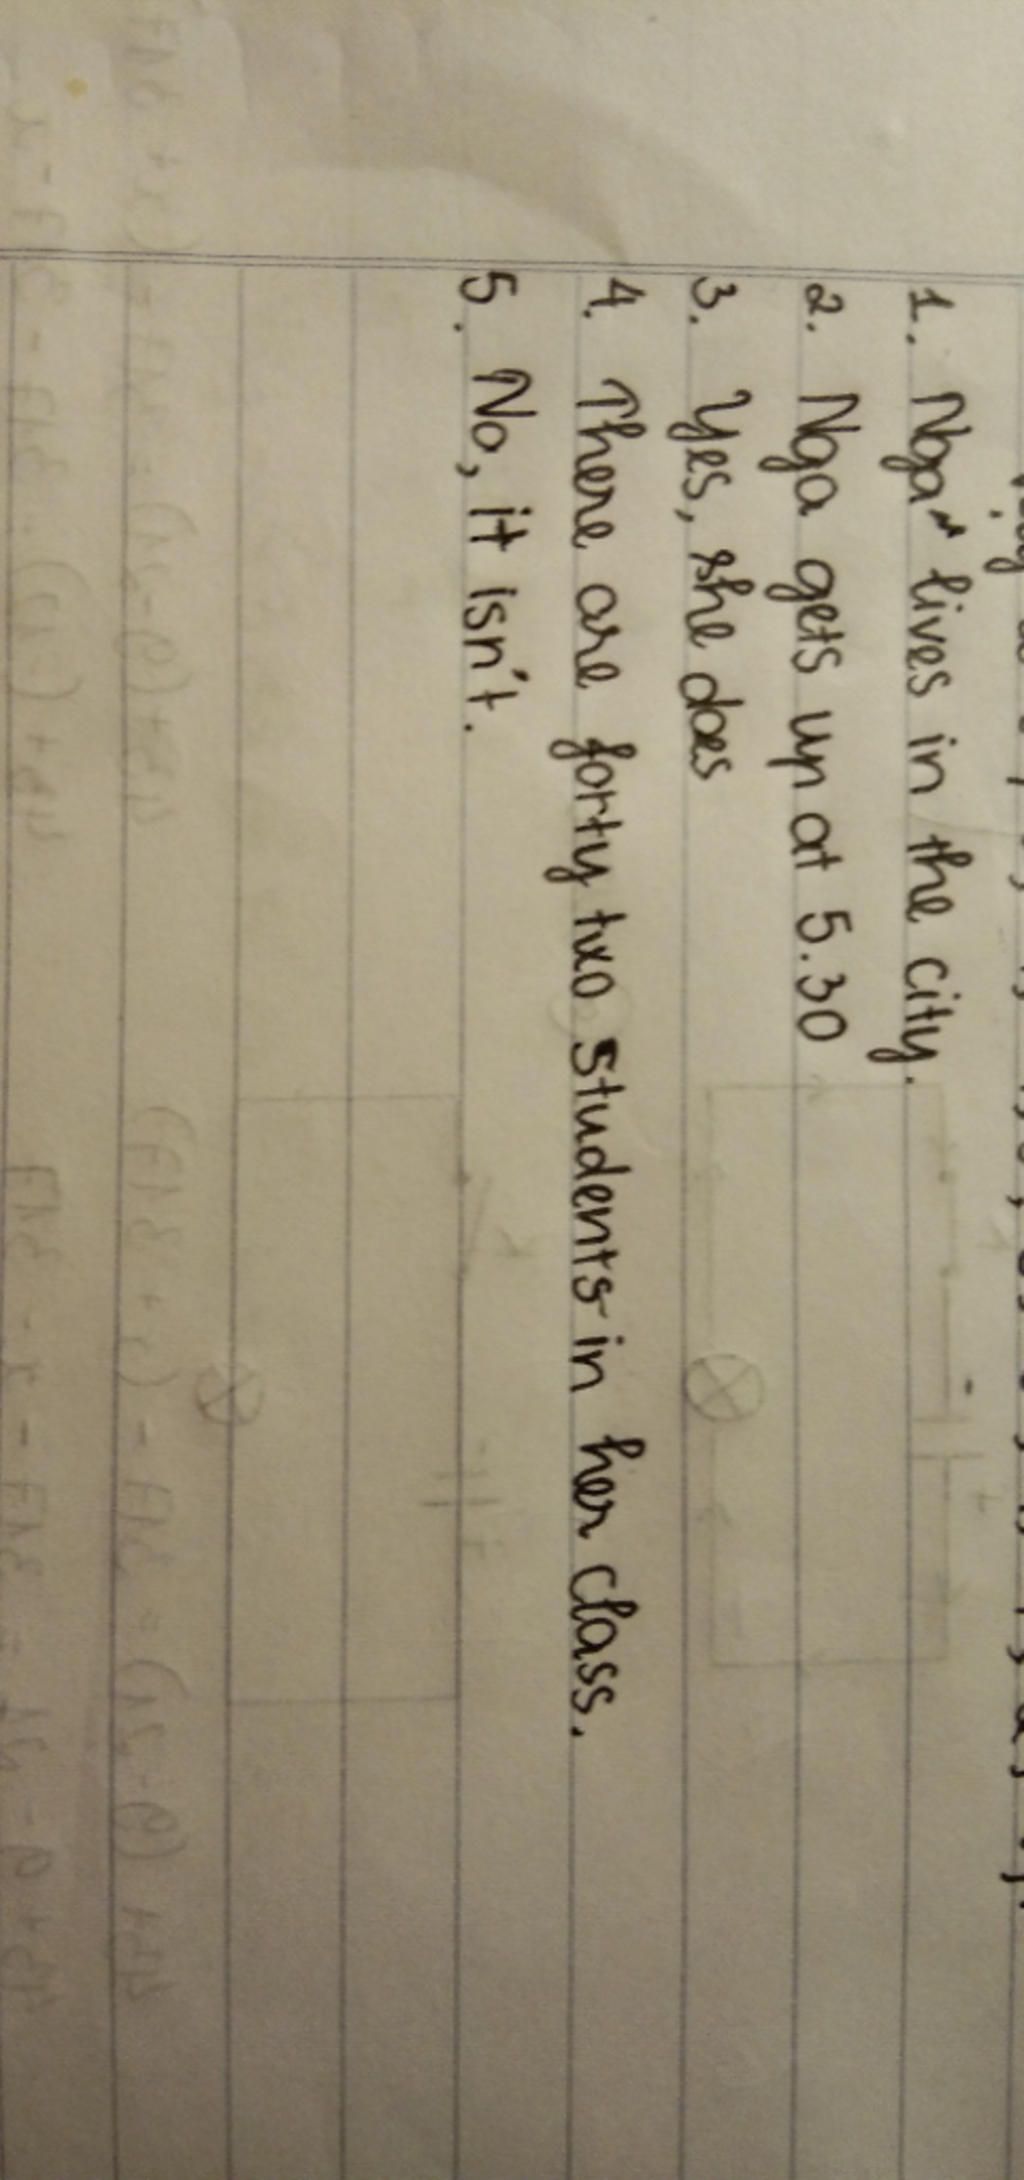 1. Nga lives in the city.
2. Nga gets up at 5.30
3. Yes, she does
4. There are forty two students in her class.
5. No, it isn't.